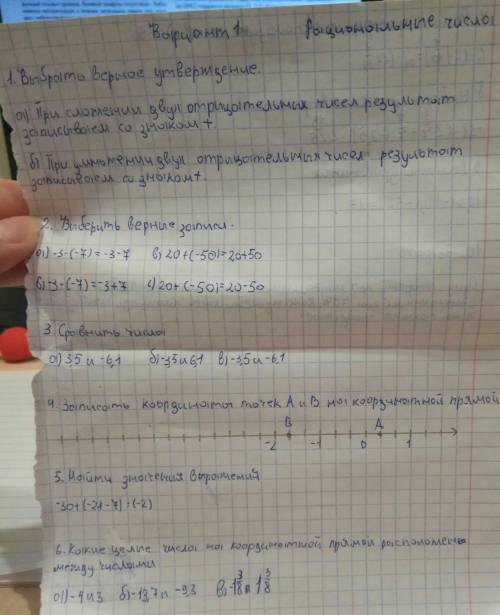 Вариант 1 Рациональные числа
1. Выбрать верное утверждение.
а) При сложении двух отрицательных чисел результат
записываем со знаком +.
б) При умножении двух отрицательных чисел результат
записываем со знаком +.
2. Выберить верные записи.
а) -3-(-7)=-3-7 в) 20+(-50)=20+50
в) -3-(-7)=-3+7 г) 20+(-50)=20-50
3. Сравнить числа
а) 3,5 и -6,1 б) -3,5 и 6,1 в) -3,5 и -6,1
4. Записать координаты точек А и В на координатной прямой
В А
-2 -1 0 1
5. Найти значения выражений
-30+(-21-7):(-2)
6. Какие целые числа на координатной прямой расположены
между числами
а) -4 и 3 б) -13,7 и -9,3 в) -1 3/8 и 1 3/8